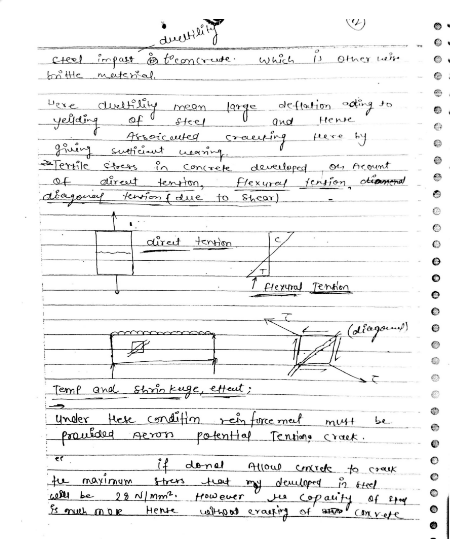 12
ductility
steel impart to concrete. which is otherwise
brittle material.
Here ductility mean large deflation to
yeliding of steel and Hence
Assoicated cracking Here by
giving sufficient warning.
Tensile stress in concrete developed on Acount
of direct tension, flexural tension,
diagonal tension (due to shear)
direct tension
C
T
flexural Tension
(diagonal)
τ
τ
Temp and shrinkage, effect;
under these condition reinforcemet must be
provided potential Tension crack.
if donot Allow concrete to crack
the maximum stress that may developed in steel
will be 28 N/mm². However the capacity of steel
is much more Hence without cracking of concrete